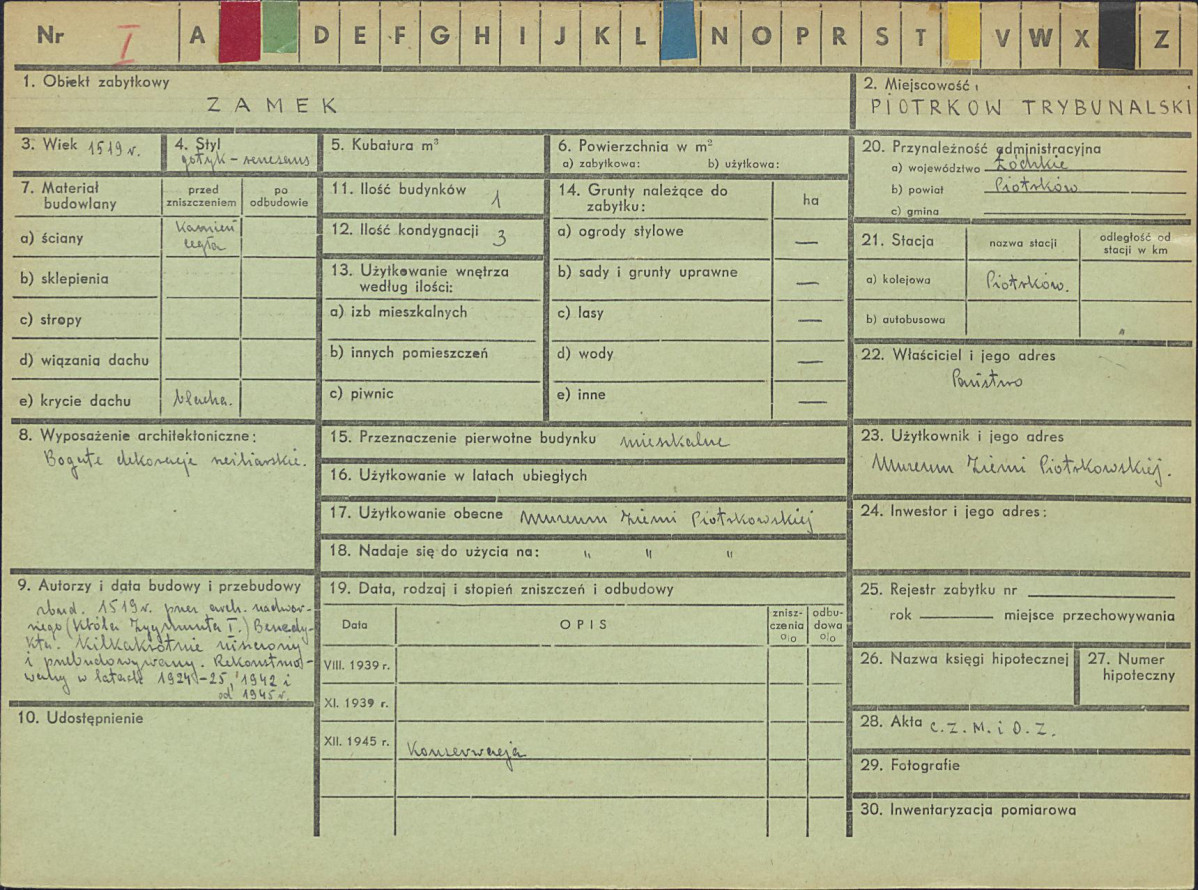 Nr I A D E F G H I J K L N O P R S T V W X Z
1. Obiekt zabytkowy
ZAMEK
2. Miejscowość
PIOTRKOW TRYBUNALSKI
3. Wiek 1519 r.
4. Styl
gotyk - renesans
5. Kubatura m³
6. Powierzchnia w m²
a) zabytkowa: b) użytkowa:
7. Materiał budowlany
przed zniszczeniem
po odbudowie
a) ściany
Kamień
cegła
b) sklepienia
c) stropy
d) wiązania dachu
e) krycie dachu blacha.
8. Wyposażenie architektoniczne:
Bogate dekoracje
9. Autorzy i data budowy i przebudowy
zbud. 1519 r. przez arch. nadwor-
nego (Króla Zygmunta I.) Benedy-
kta. Kilkakrotnie niszczony
i przebudowywany. Rekonstruo-
wany w latach 1924-25, 1942 i
od 1945 r.
10. Udostępnienie
11. Ilość budynków 1
12. Ilość kondygnacji 3
13. Użytkowanie wnętrza
według ilości:
a) izb mieszkalnych
b) innych pomieszczeń
c) piwnic
14. Grunty należące do
zabytku:
ha
a) ogrody stylowe —
b) sady i grunty uprawne —
c) lasy —
d) wody —
e) inne —
15. Przeznaczenie pierwotne budynku mieszkalne
16. Użytkowanie w latach ubiegłych
17. Użytkowanie obecne Muzeum Ziemi Piotrkowskiej
18. Nadaje się do użycia na: " " "
19. Data, rodzaj i stopień zniszczeń i odbudowy
Data
OPIS
znisz-
czenia
%
odbu-
dowa
%
VIII. 1939 r.
XI. 1939 r.
XII. 1945 r. Konserwacja
20. Przynależność administracyjna
a) województwo Łódzkie
b) powiat Piotrków
c) gmina
21. Stacja
nazwa stacji
odległość od
stacji w km
a) kolejowa Piotrków.
b) autobusowa "
22. Właściciel i jego adres
Państwo
23. Użytkownik i jego adres
Muzeum Ziemi Piotrkowskiej.
24. Inwestor i jego adres:
25. Rejestr zabytku nr
rok miejsce przechowywania
26. Nazwa księgi hipotecznej
27. Numer
hipoteczny
28. Akta C. Z. M. i O. Z.
29. Fotografie
30. Inwentaryzacja pomiarowa